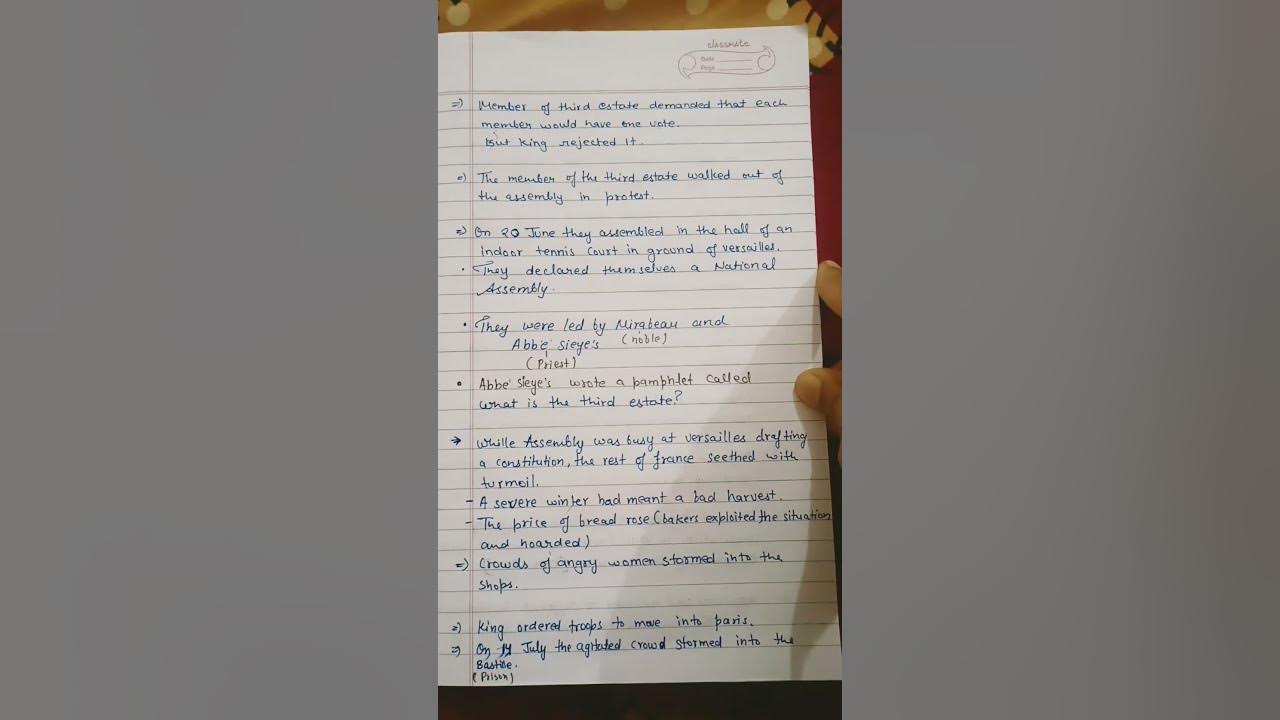 classmate
Date
Page
=) Member of third estate demanded that each
member would have one vote.
But king rejected it.
=) The member of the third estate walked out of
the assembly in protest.
=) On 20 June they assembled in the hall of an
indoor tennis court in ground of versailles.
• They declared themselves a National
Assembly.
• They were led by Mirabeau and
Abbe' sieye's (noble)
(Priest)
• Abbe' Sieye's wrote a pamphlet called
what is the third estate?
→ While Assembly was busy at versailles drafting
a constitution, the rest of france seethed with
turmoil.
- A severe winter had meant a bad harvest.
- The price of bread rose (bakers exploited the situation
and hoarded)
=) Crowds of angry women stormed into the
shops.
=) King ordered troops to move into paris.
=) On 14 July the agitated crowd stormed into the
Bastile.
(Prison)